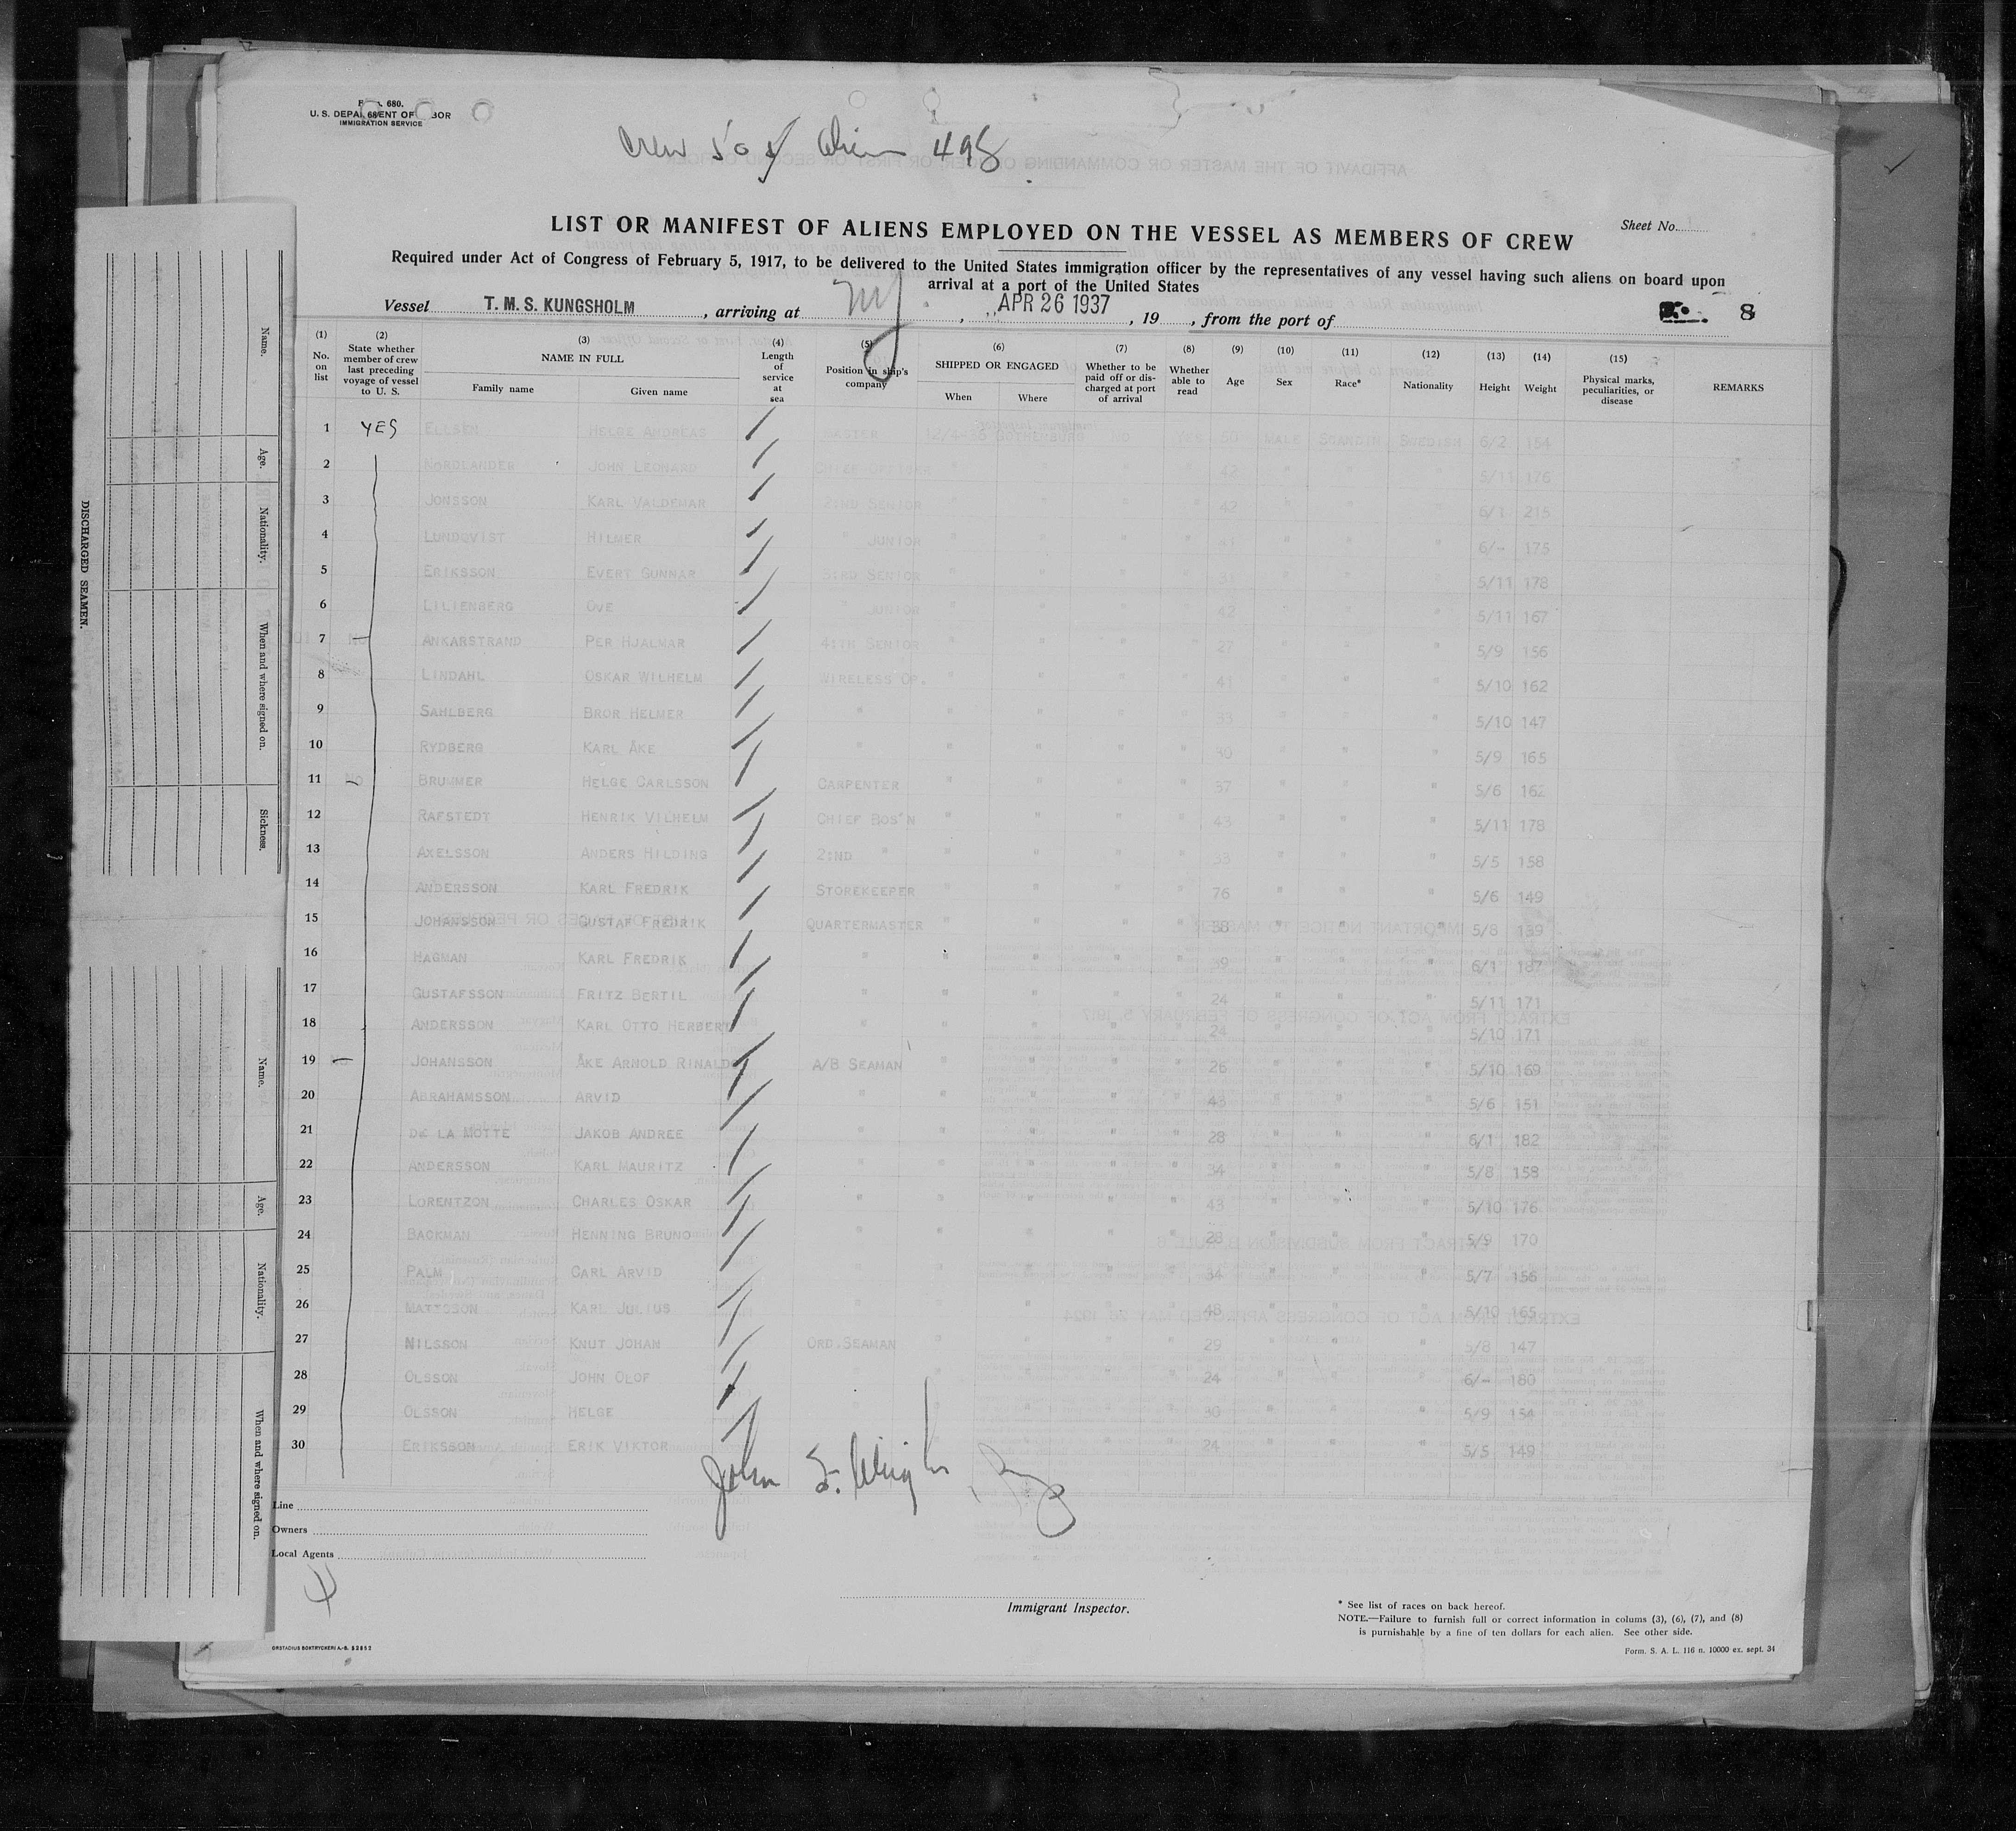 680.
U. S. DEPA ENT OF BOR
IMMIGRATION SERVICE
Crew 50 Alien 498
LIST OR MANIFEST OF ALIENS EMPLOYED ON THE VESSEL AS MEMBERS OF CREW
Sheet No.
Required under Act of Congress of February 5, 1917, to be delivered to the United States immigration officer by the representatives of any vessel having such aliens on board upon
arrival at a port of the United States
Vessel T. M. S. KUNGSHOLM, arriving at NY, APR 26 1937, 19, from the port of 8
(1) No. on list (2) State whether member of crew last preceding voyage of vessel to U. S. (3) NAME IN FULL Family name Given name (4) Length of service at sea (5) Position in ship's company (6) SHIPPED OR ENGAGED When Where (7) Whether to be paid off or discharged at port of arrival (8) Whether able to read (9) Age (10) Sex (11) Race* (12) Nationality (13) Height (14) Weight (15) Physical marks, peculiarities, or disease REMARKS
1 YES HELGE ANDREAS GOTHENBURG NO YES 50 MALE SCANDIN SWEDISH 6/2 154
2 NORDLANDER JOHN LEONARD CHIEF OFFICER " " " 42 " " " 5/11 176
3 JONSSON KARL VALDEMAR 2:ND SENIOR " " " " 42 " " " 6/1 215
4 LUNDQVIST HILMER " JUNIOR " " " " " " " 6/- 175
5 ERIKSSON EVERT GUNNAR 3:RD SENIOR " " " " " " " 5/11 178
6 LILIENBERG OVE " JUNIOR " " " " 42 " " " 5/11 167
7 ANKARSTRAND PER HJALMAR 4:TH SENIOR " " " " 27 " " " 5/9 156
8 LINDAHL OSKAR WILHELM WIRELESS OP. " " " " 41 " " " 5/10 162
9 SAHLBERG BROR HELMER " " " " " 33 " " " 5/10 147
10 RYDBERG KARL ÅKE " " " " " 30 " " " 5/9 165
11 NO BRUMMER HELGE CARLSSON CARPENTER " " " " 37 " " " 5/6 162
12 RAFSTEDT HENRIK VILHELM CHIEF BOS'N " " " " 43 " " " 5/11 178
13 AXELSSON ANDERS HILDING 2:ND " " " " " 33 " " " 5/5 158
14 ANDERSSON KARL FREDRIK STOREKEEPER " " " " 76 " " " 5/6 149
15 JOHANSSON GUSTAF FREDRIK QUARTERMASTER " " " " 38 " " " 5/8 139
16 HAGMAN KARL FREDRIK " " " " " 39 " " " 6/1 187
17 GUSTAFSSON FRITZ BERTIL " " " " " 24 " " " 5/11 171
18 ANDERSSON KARL OTTO HERBERT " " " " " 24 " " " 5/10 171
19 JOHANSSON ÅKE ARNOLD RINALDO A/B SEAMAN " " " " 26 " " " 5/10 169
20 ABRAHAMSSON ARVID " " " " " 43 " " " 5/6 151
21 DE LA MOTTE JAKOB ANDREE " " " " " 28 " " " 6/1 182
22 ANDERSSON KARL MAURITZ " " " " " 34 " " " 5/8 158
23 LORENTZON CHARLES OSKAR " " " " " 43 " " " 5/10 176
24 BACKMAN HENNING BRUNO " " " " " 28 " " " 5/9 170
25 PALM CARL ARVID " " " " " 34 " " " 5/7 156
26 MATTSSON KARL JULIUS " " " " " 48 " " " 5/10 165
27 NILSSON KNUT JOHAN ORD.SEAMAN " " " " 29 " " " 5/8 147
28 OLSSON JOHN OLOF " " " " " 24 " " " 6/- 180
29 OLSSON HELGE " " " " " 30 " " " 5/9 154
30 ERIKSSON ERIK VIKTOR " " " " " 24 " " " 5/5 149
John
Line
Owners
Local Agents
Immigrant Inspector.
* See list of races on back hereof.
NOTE.—Failure to furnish full or correct information in colums (3), (6), (7), and (8)
is punishable by a fine of ten dollars for each alien. See other side.
ORSTADIUS BOKTRYCKERI A.-B. 52852
Form. S. A. L. 116 n. 10000 ex. sept. 34
DISCHARGED SEAMEN.
Name.
Age.
Nationality.
When and where signed on.
Sickness.
Name.
Age.
Nationality.
When and where signed on.